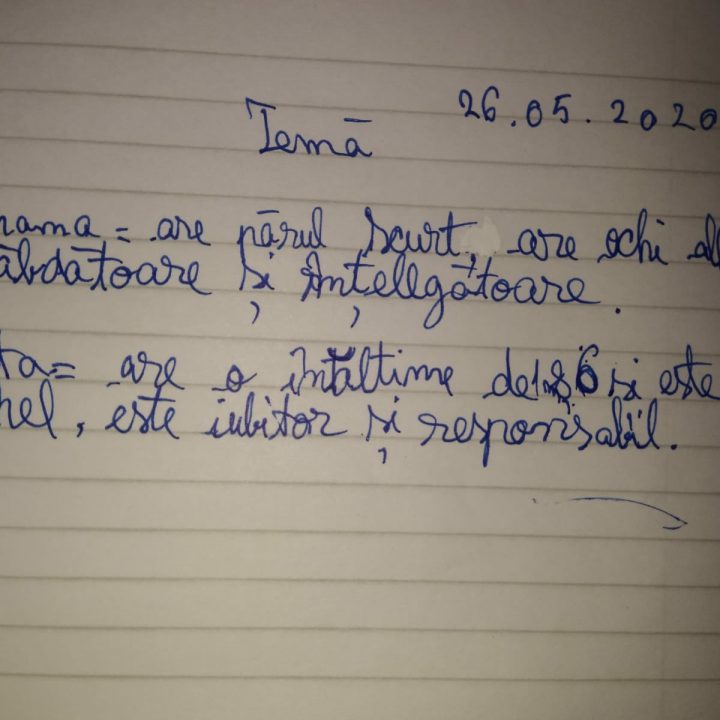 26.05.2020
Temă
mama = are părul scurt, are ochi al
ăbdătoare și înțelegătoare.
ta = are o înălțime de 1.86 si este
hel, este iubitor și responsabil.